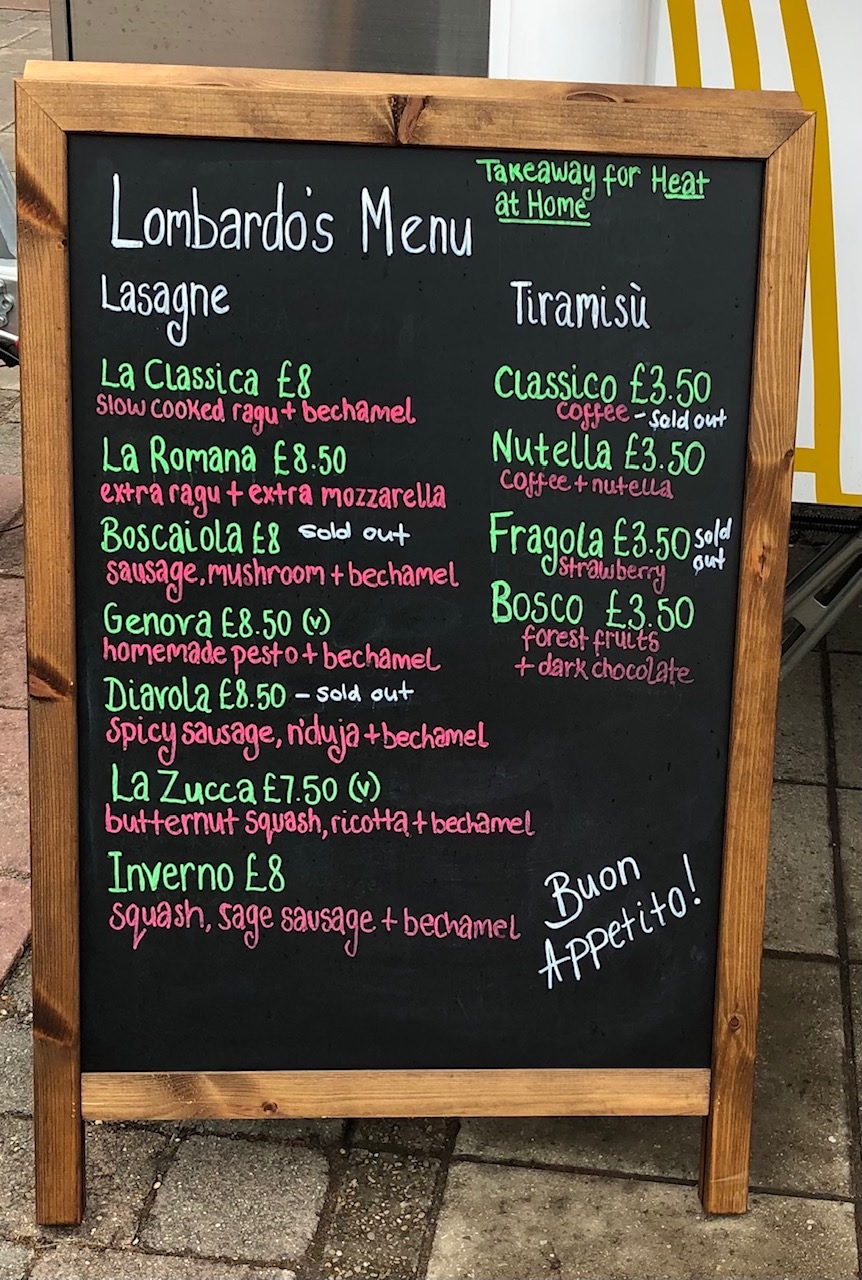 Takeaway for Heat
at Home
Lombardo's Menu
Lasagne
La Classica £8
slow cooked ragu + bechamel
La Romana £8.50
extra ragu + extra mozzarella
Boscaiola £8 sold out
sausage, mushroom + bechamel
Genova £8.50 (v)
homemade pesto + bechamel
Diavola £8.50 - sold out
spicy sausage, n'duja + bechamel
La Zucca £7.50 (v)
butternut squash, ricotta + bechamel
Inverno £8
squash, sage sausage + bechamel
Tiramisù
Classico £3.50
coffee - sold out
Nutella £3.50
coffee + nutella
Fragola £3.50 sold
strawberry out
Bosco £3.50
forest fruits
+ dark chocolate
Buon
Appetito!